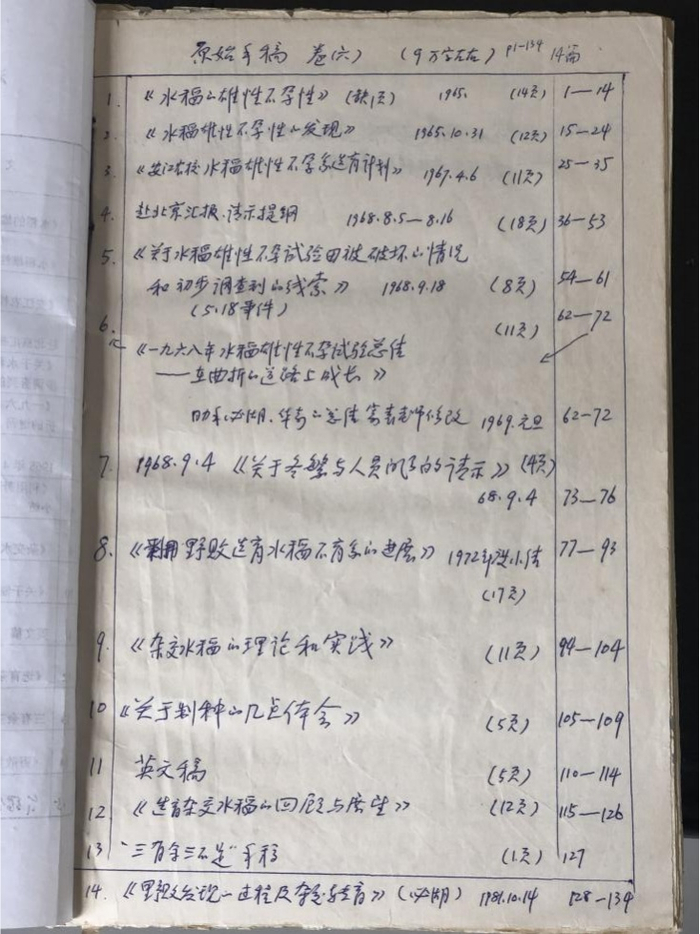 原始手稿 卷(六) (9万字左右) P1-134 14篇
1. 《水稻的雄性不孕性》(缺1页) 1965. (14页) 1—14
2. 《水稻雄性不孕性的发现》 1965.10.31 (12页) 15-24
3. 《安江农校水稻雄性不孕系选育计划》 1967.4.6 (11页) 25—35
4. 赴北京汇报、请示提纲 1968.8.5—8.16 (18页) 36—53
5. 《关于水稻雄性不孕试验田被破坏的情况
和初步调查到的线索》 1968.9.18 (8页) 54—61
(5.18事件)
6. (11页) 62—72
《一九六八年水稻雄性不孕试验总结
——在曲折的道路上成长》
助手必湖、华奇的总结 袁老师修改 1969.元旦 62—72
7. 1968.9.4 《关于冬繁与人员的请示》(4页)
68.9.4 73—76
8. 《利用野败选育水稻不育系的进展》 1972年小结 77—93
(17页)
9. 《杂交水稻的理论和实践》 (11页) 94—104
10 《关于制种的几点体会》 (5页) 105—109
11 英文稿 (5页) 110—114
12. 《选育杂交水稻的回顾与展望》 (12页) 115—126
13 "三有余三不足"手稿 (1页) 127
14. 《野败发现的过程及转育》(必湖) 1981.10.14 128—134